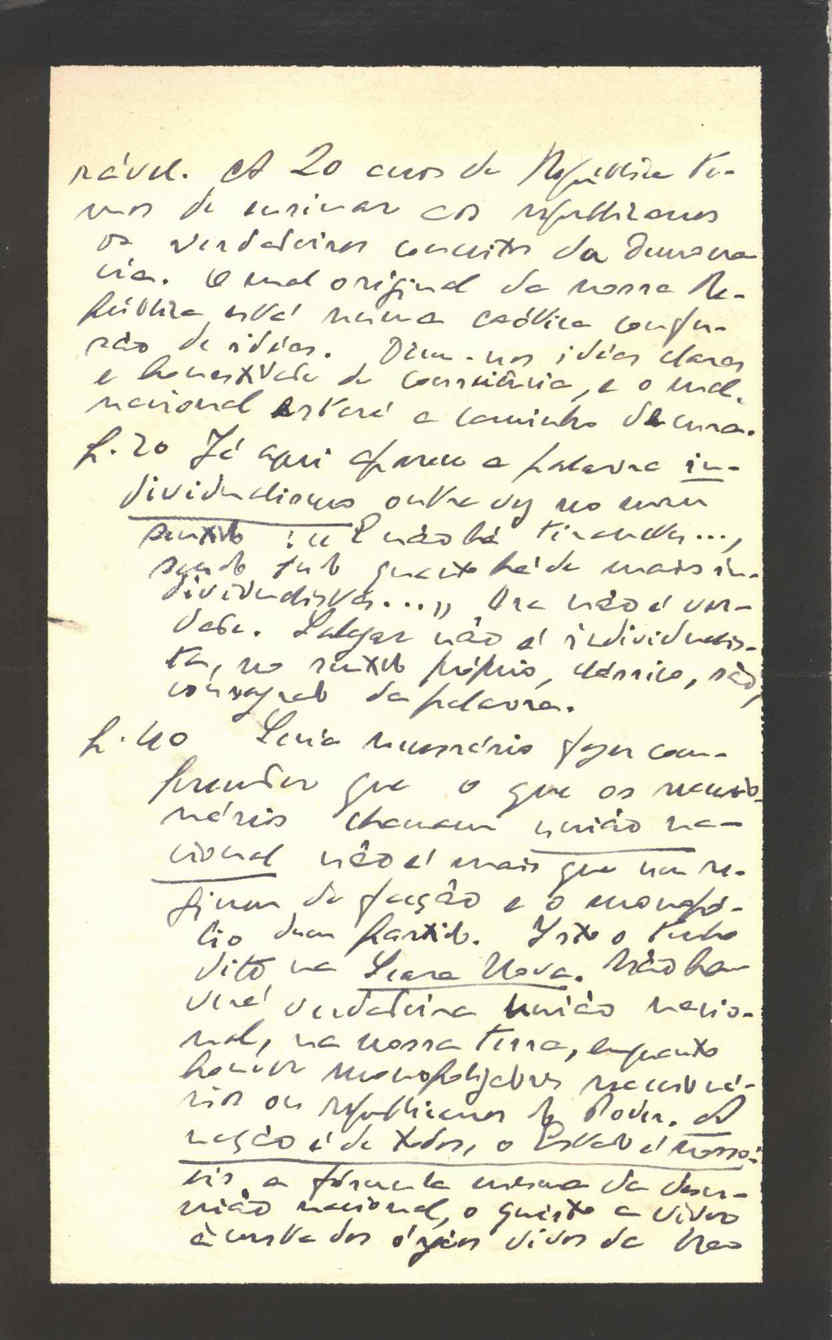 rável. A 20 anos de República te-
mos de ensinar aos republicanos
os verdadeiros conceitos da Democra
cia. O mal original da nossa Re-
pública está numa caótica confu-
são de idéas. Dêem-nos idéas claras
e honestidade de consciência, e o mal
nacional estará a caminho de cura.
p. 20 Já aqui aparece a palavra in-
dividualismo outra vez no mau
sentido: «E não há tiranetes...,
sendo tudo quanto há de mais in-
dividualista...» Ora não é ver-
dade. Salazar não é individualis-
ta, no sentido próprio, clássico, são,
consagrado da palavra.
p. 40 Seria necessário fazer com-
preender que o que os reaccio-
nários chamam união na-
cional não é mais que um re-
gimen de facção e o monopó-
lio dum partido. Isto o tenho
dito na Seara Nova. Não ha-
verá verdadeira união nacio-
nal, na nossa terra, enquanto
houver monopolizadores reaccioná-
rios ou republicanos do Poder. A
nação é de todos, o Estado é nosso:
eis a fórmula mesma da desu-
nião nacional, o quisto a viver
à custa dos órgãos vivos da